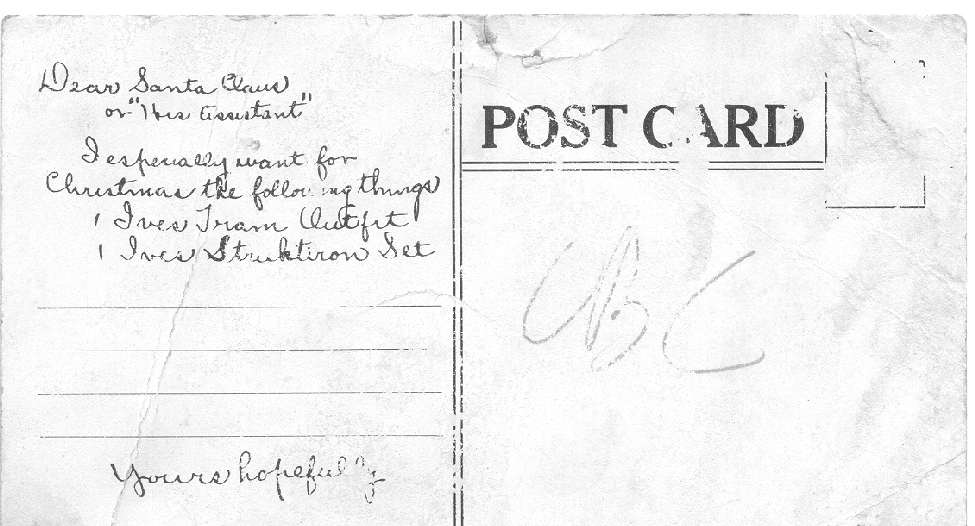 Dear Santa Claus
or "His Assistant"
I especially want for
Christmas the following things
1 Ives Train Outfit
1 Ives Struktiron Set
Yours hopefully
POST CARD
ABC